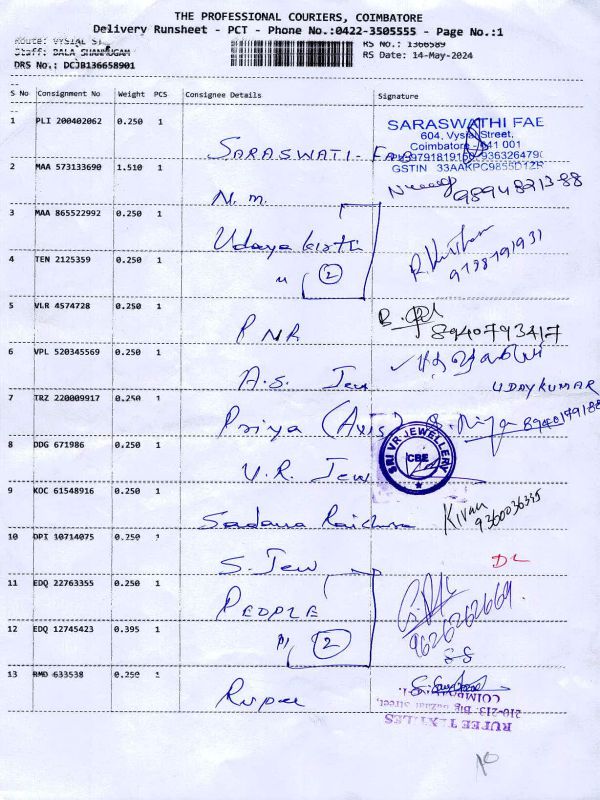 THE PROFESSIONAL COURIERS, COIMBATORE
Delivery Runsheet - PCT - Phone No.:0422-3505555 - Page No.:1
Route: VYSIAL ST
Staff: BALA SHANMUGAM
DRS No.: DCJB136658901
RS No.: 1366589
RS Date: 14-May-2024
S No Consignment No Weight PCS Consignee Details Signature
1 PLI 200402062 0.250 1 SARASWATI-FAB
SARASWATHI FAB
604, Vysial Street,
Coimbatore - 641 001
GSTIN 33AAKPC9855D1ZR
2 MAA 573133690 1.510 1 N. m. 9894821388
3 MAA 865522992 0.250 1 Udaya kirthi
4 TEN 2125359 0.250 1 " 2
9738791931
5 VLR 4574728 0.250 1 PNR 8940793417
6 VPL 520345569 0.250 1 A.S. Jew
UDAYKUMAR
7 TRZ 220009917 0.250 1 Priya (Axis) 8940179188
8 DDG 671986 0.250 1 V.R. Jew
SRI VR JEWELLERY
CBE
9 KOC 61548916 0.250 1 Sadana Raichura Kiran
9360036335
10 OPI 10714075 0.250 1 S. Jew DL
11 EDQ 22763355 0.250 1 PEOPLE
12 EDQ 12745423 0.395 1 2
9626262669
13 RMD 633538 0.250 1 Rupee
RUFEE TEXTILES
210-213, Big Bazaar Street,
COIMBATORE